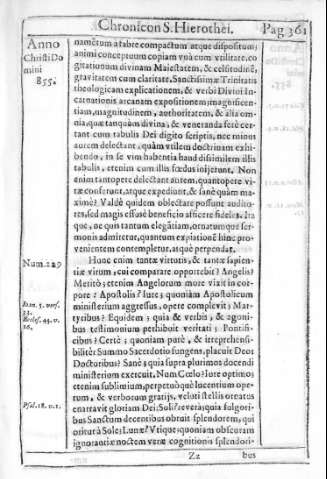 Chronicon S. Hierothei. Pag 361
Anno
Christi Do
mini
855.
namētum a fabre compactum atque dispositum;
animi conceptuum copiam vnà cum vtilitate, co
gitationum divinam Maiestatem, & celsitudinē,
gravitatem cum claritate, Sanctissimæ Trinitatis
theologicam explicationem, & verbi Divini In-
carnationis arcanam expositionem; magnificen-
tiam, magnitudinem, authoritatem, & alia om-
nia, quæ tanquam divina, & veneranda ferè cer-
tant cum tabulis Dei digito scriptis, nec minus
aurem delectant, quàm vtilem doctrinam exhi-
bendo, in se vim habentia haud dissimilem illis
tabulis, etenim cum illis fœdus injerunt. Non
enim tantopere delectant aurem, quantopere vi-
tæ conferunt, atque expediunt, & sanè quàm ma-
ximè? Valdè quidem oblectare possunt audito-
res, sed magis effusè beneficio afficere fideles. Ita
que, ob quis tantum elegātiam, ornatumque ser-
monis admirretur, quantum expiationē hinc pro-
venientem contempletur, atque perpendat.
Num. 229
Hunc enim tantæ virtutis, & tantæ sapien-
tiæ virum, cui comparare opportebit? Angelis?
Meritò; etenim Angelorum more vixit in cor-
pore? Apostolis? Iure; quoniam Apostolicum
ministerium aggressus, opere complevit; Mar-
tyribus? Equidem; quia & verbis, & agoni-
bus testimonium perhibuit veritati; Pontifi-
cibus? Certè; quoniam purè, & irreprehensi-
bilitèr Summo Sacerdotio fungens, placuit Deo:
Doctoribus? Sanè; quia supra plurimos docendi
ministerium exercuit. Num Cœlo? Iure optimo;
etenim sublimium, perpetuòque lucentium ope-
rum, & verborum gratijs, veluti stellis ornatus
enarravit gloriam Dei: Soli? revera; quia fulgori-
bus Sanctum decentibus obruit splendorem, qui
oritur à Sole; Lunæ? Vtique; quoniam obscuram
ignorantiæ noctem veræ cognitionis splendori-
Ioan. 5. vers.
33.
Eccles. 44. v.
16.
Psal. 18. v. 1.
Zz bus